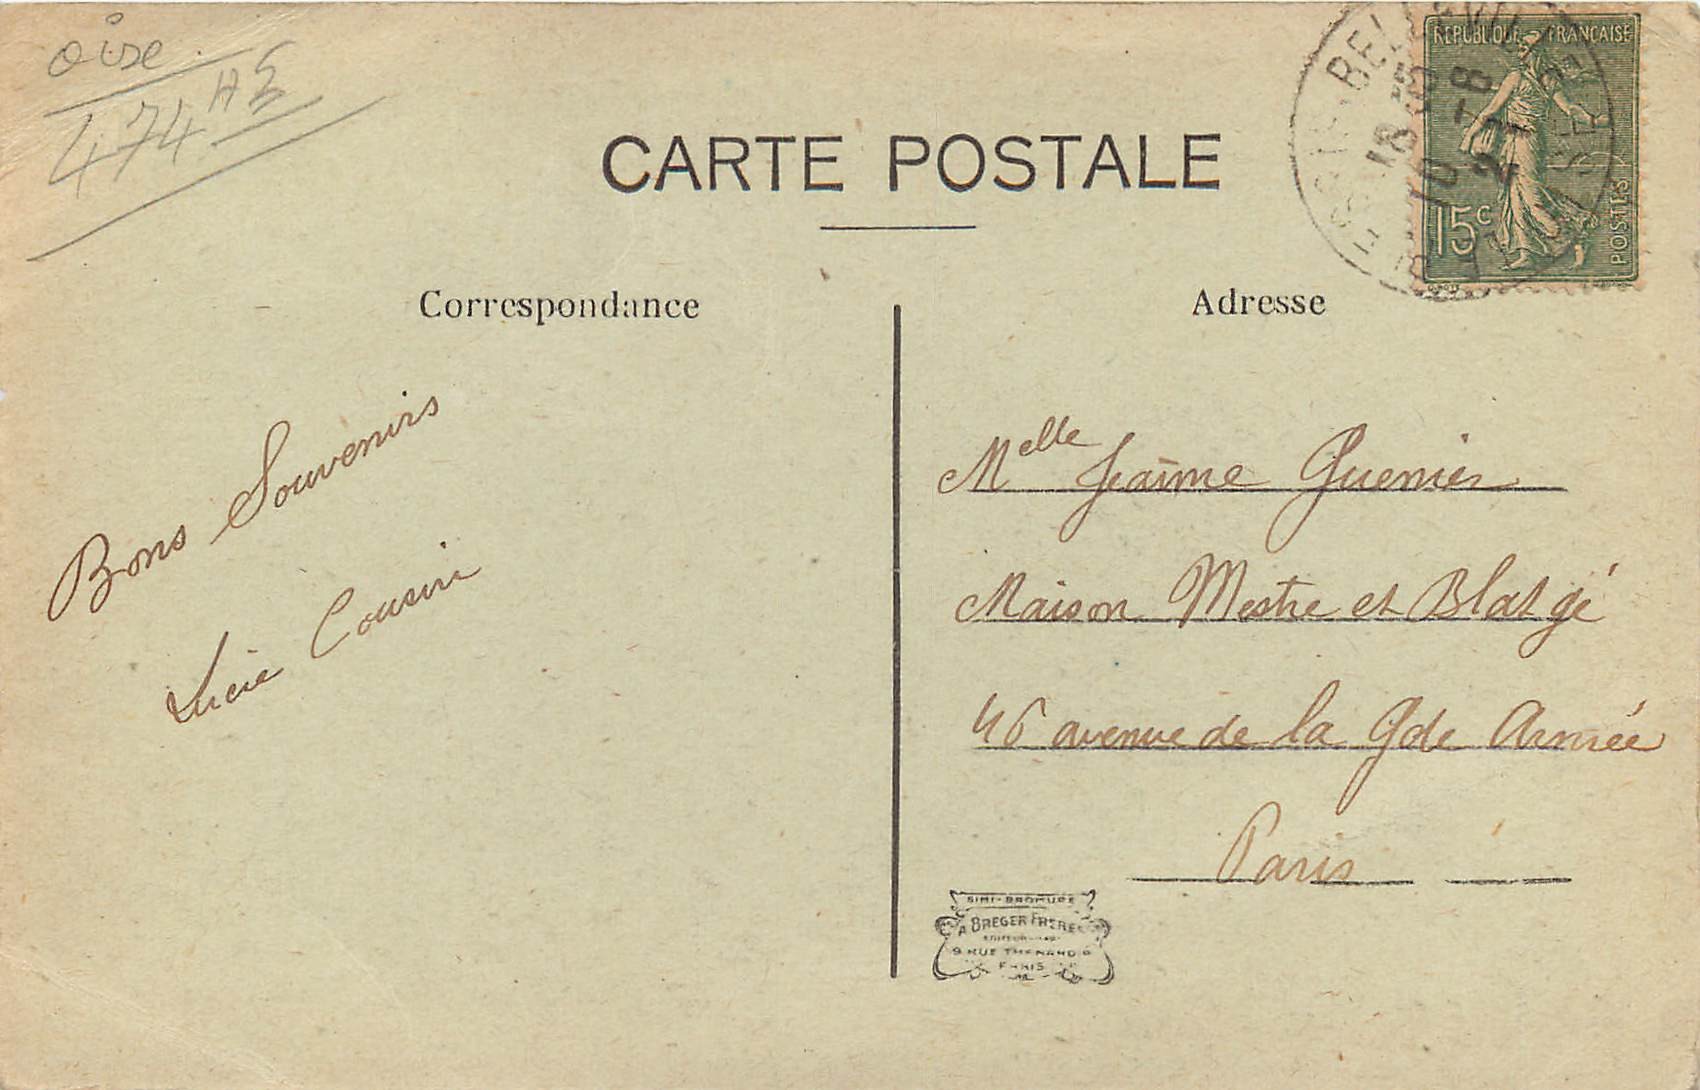 oise
474 HE
CARTE POSTALE
REPUBLIQUE FRANÇAISE
15c
POSTES
18 35
10 -8
21
Correspondance
Adresse
Bons Souvenirs
Lucie Cousin
Melle Jeanne Guenier
Maison Mestre et Blatgé
46 avenue de la Gde Armée
Paris
SIMI-BROMURE
A BREGER FRERES
9 RUE THENARD 9
PARIS